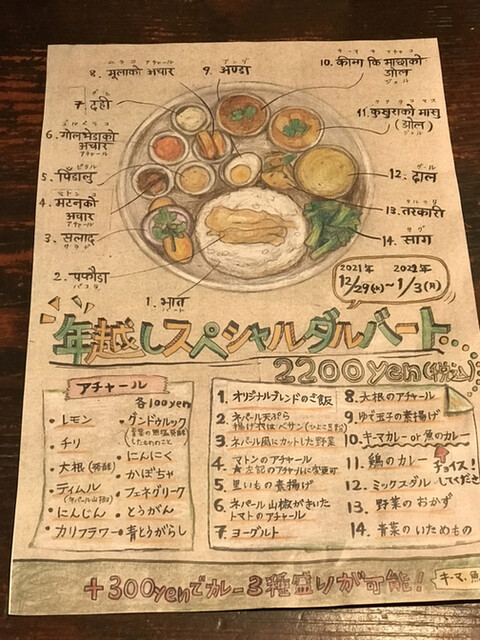 8. मूलाको अचार
9. अण्डा
10. कीमा कि माछाको
झोल
7. दही
11. कुखुराको मासु
(झोल)
6. गोलभेडाको
अचार
5. पिँडालु
12. दाल
4. मटनको
अचार
13. तरकारी
3. सलाद
14. साग
2. पकौडा
1. भात
2021年 2022年
12/29(水)~1/3(月)
年越しスペシャルダルバート
2200yen(税込)
アチャール
各100yen
・レモン
・チリ
・大根(発酵)
・ティムル
(ネパール山椒)
・にんじん
・カリフラワー
・グンドゥルック
・にんにく
・かぼちゃ
・フェネグリーク
・とうがん
・青とうがらし
1. オリジナルブレンドのご飯
2. ネパール天ぷら
揚げ衣はベサン(ひよこ豆粉)
3. ネパール風にカットした野菜
4. マトンのアチャール
★左記のアチャールに変更可
5. 里いもの素揚げ
6. ネパール山椒がきいた
トマトのアチャール
7. ヨーグルト
8. 大根のアチャール
9. ゆで玉子の素揚げ
10. キーマカレーor魚のカレー
11. 鶏のカレー
チョイス!
してください
12. ミックスダル
13. 野菜のおかず
14. 青菜のいためもの
+300yenでカレー3種盛りが可能!
キーマ、魚